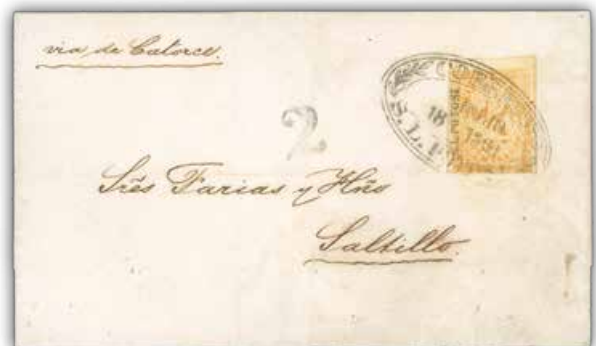 via de Catorce.
2
18
S. L. P.
Sres Farias y Hno
Saltillo.